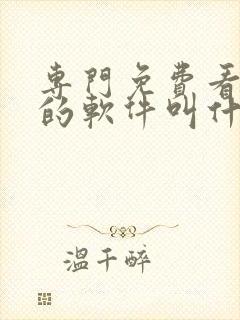 專門免費看
的軟件叫什
溫千醉